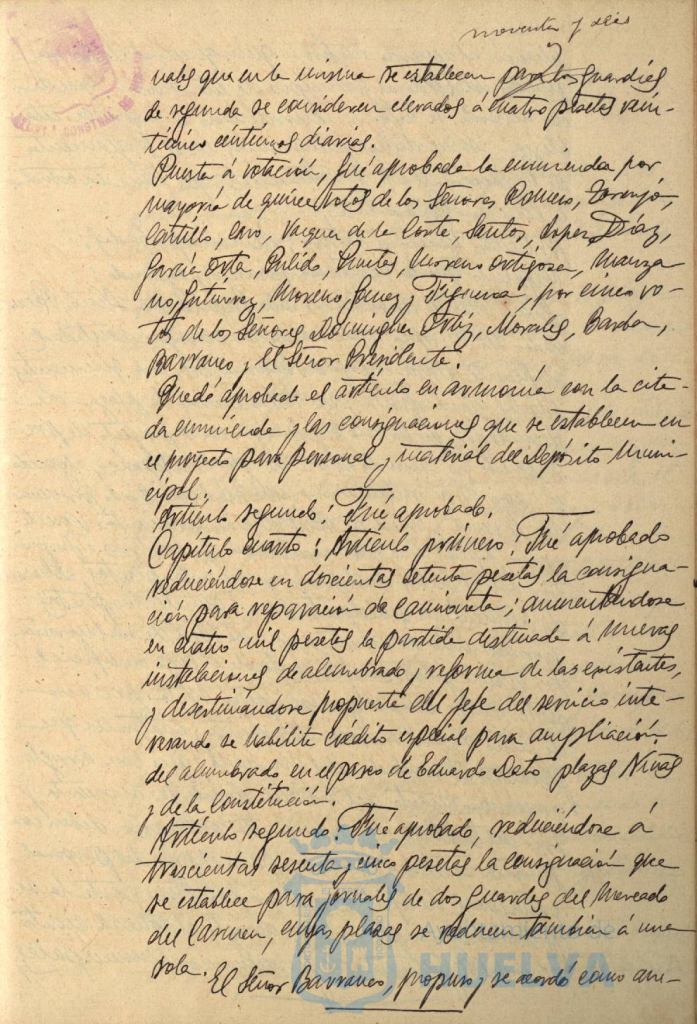 noventa y seis
nales que en la misma se establecen para los guardias
de segunda se consideren elevados á cuatro pesetas vein-
ticinco céntimos diarias.
Puesta á votación, fué aprobada la enmienda por
mayoría de quince votos de los Señores Romero, Toronjo,
Castillo, Caro, Vazquez de la Corte, Santos, Lopez Díaz,
García Orta, Pulido, Fuentes, Moreno Ortigosa, Manza
no, Gutiérrez, Moreno, Gomez y Figueroa, por cinco vo-
tos de los Señores Dominguez Ortiz, Morales, Barba,
Barranco y el Señor Presidente.
Quedó aprobado el artículo en armonía con la cita-
da enmienda y las consignaciones que se establecen en
el proyecto para personal y material del Depósito Muni-
cipal.
Artículo segundo: Fué aprobado.
Capítulo cuarto: Artículo primero: Fué aprobado
reduciéndose en doscientas setenta pesetas la consigna-
ción para reparación de camioneta; aumentándose
en cuatro mil pesetas la partida destinada á nuevas
instalaciones de alumbrado y reforma de las existentes,
y desestimándose propuesta del Jefe del servicio inte-
resando se habilite crédito especial para ampliación
del alumbrado en el paseo de Eduardo Dato plazas Niñas
y de la Constitución.
Artículo segundo. Fué aprobado, reduciéndose á
trescientas sesenta y cinco pesetas la consignación que
se establece para jornales de dos guardas del Mercado
del Carmen, cuyas plazas se reducen también á una
sola.
El Señor Barranco, propuso y se acordó como am-
HUELVA